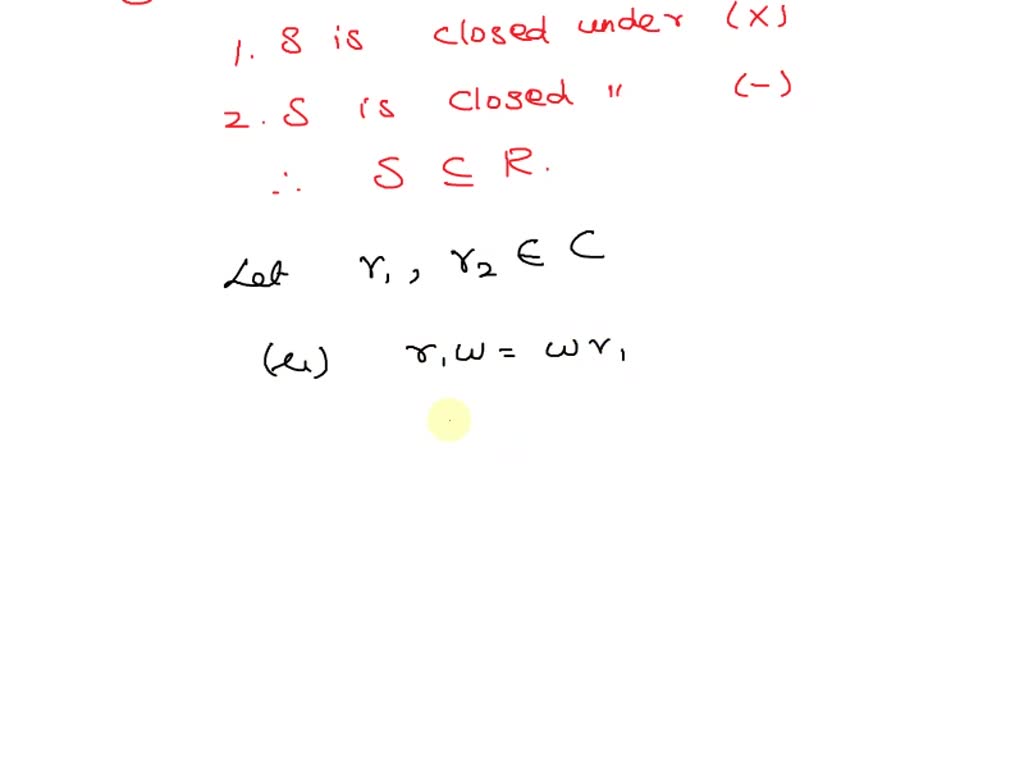 1. S is closed under (x)
2. S is closed " (-)
∴ S ⊆ R.
Let r₁, r₂ ∈ C
r₁ω = ωr₁